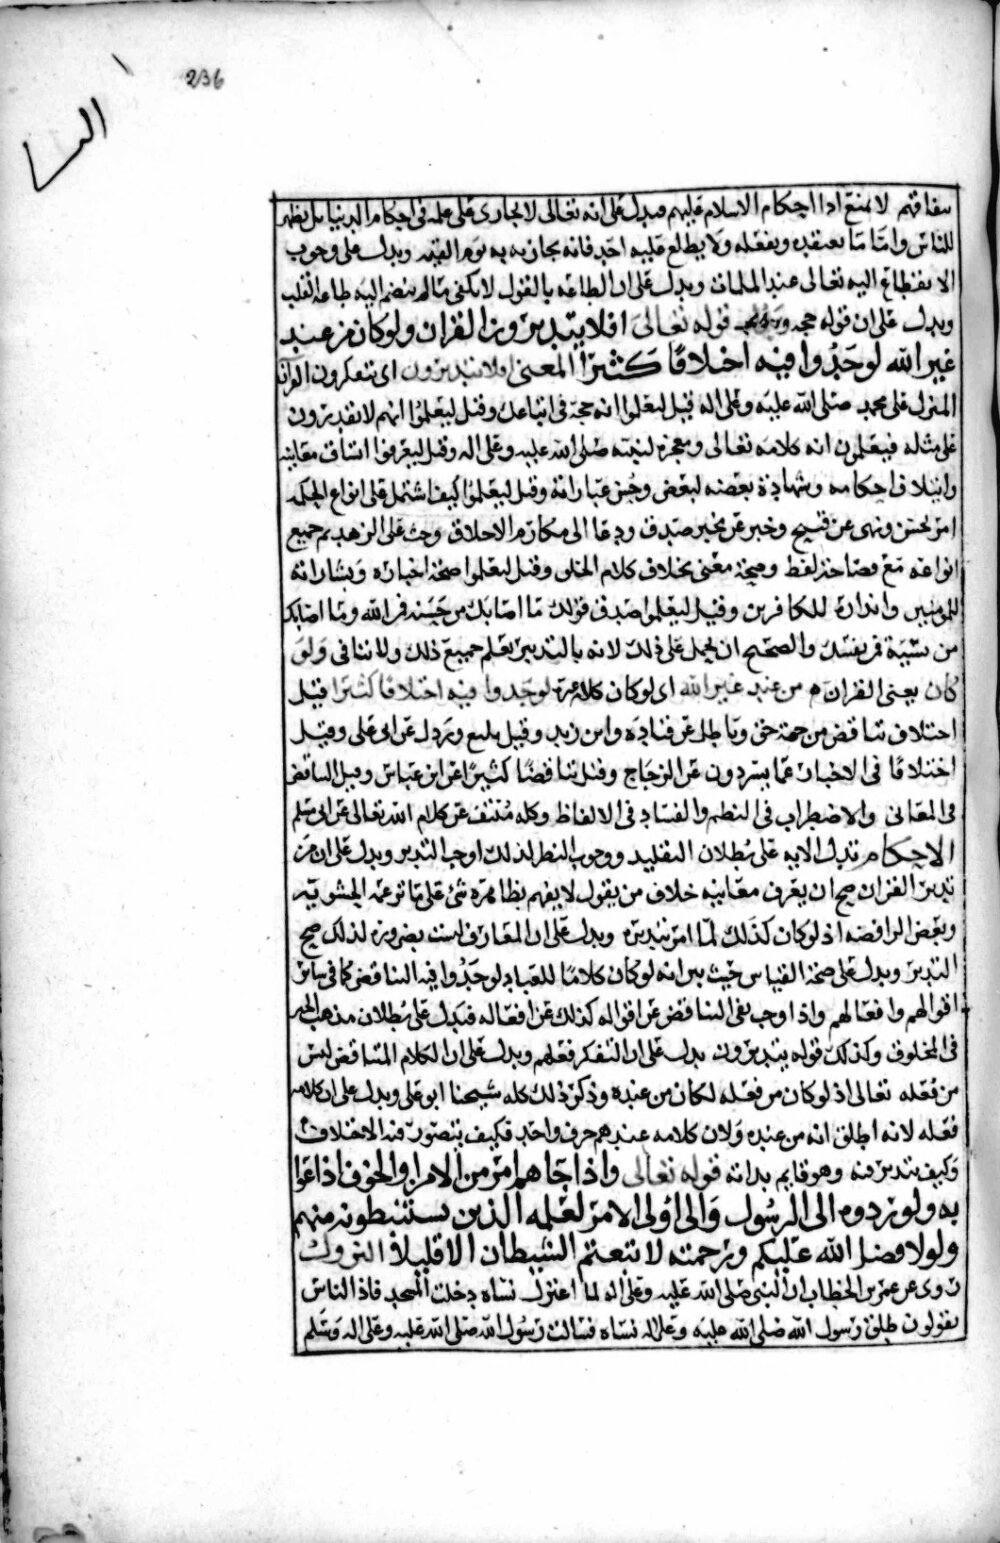 236
نفاقهم لا يمنع اذا احكام الاسلام عليهم ويدل على انه تعالى لا يجازى على علمه فى احكام الدنيا بل يظهر
للناس واما ما يعتقده ويفعله ولا يطلع عليه احد فانه يجازيه به يوم القيمه ويدل على وجوب
الانقطاع اليه تعالى عند الملمات ويدل على ان الطاعه بالقول لا يكفى مالم ينضم اليه طاعة القلب
ويدل على ان قوله حجه قوله تعالى افلا يتدبرون القران ولو كان من عند
غير الله لوجدوا فيه اختلافا كثيرا المعنى افلا يتدبرون اى يتفكرون القرآن
المنزل على محمد صلى الله عليه وعلى اله قيل ليعلموا انه حجة فى اتباعك وقيل ليعلموا انهم لا يقدرون
على مثله فيعلمون انه كلامه تعالى ومعجزة لنبيه صلى الله عليه وعلى اله وقيل ليعرفوا اتساق معانيه
وايتلاف احكامه وشهادة بعضه لبعض وحسن عباراته وقيل ليعلموا كيف اشتمل على انواع الحكمه
امر بحسن ونهى عن قبيح وخبر عن مخبر صدق ودعا الى مكارم الاخلاق وحث على الزهد بجميع
انواعه مع فصاحة لفظ وصحة معنى بخلاف كلام الخلق وقيل ليعلموا صحة اخباره وبشاراته
للمومنين وانذاره للكافرين وقيل ليعلموا صدق قولك ما اصابك من حسنه فمن الله وما اصابك
من سيئة فمن نفسك والصحيح ان يحمل على ذلك لانه بالتدبير يعلم جميع ذلك ولا تنافى ولو
كان يعنى القران من عند غير الله اى لو كان كلام غيره لوجدوا فيه اختلافا كثيرا قيل
اختلاف تناقض من جهة حق وباطل عن قتاده وابن زيد وقيل بليغ ومرذل عن ابى على وقيل
اختلافا فى الاخبار عما يسرون عن الزجاج وقيل تناقضا كثيرا عن ابن عباس وقيل التناقض
فى المعانى والاضطراب فى النظم والفساد فى الالفاظ وكله منتف عن كلام الله تعالى عن ابى مسلم
الاحكام تدل الايه على بطلان التقليد ووجوب النظر لذلك اوجب التدبر ويدل على ان من
تدبر القران صح ان يعرف معانيه خلاف من يقول لا يفهم بظاهره شئ على ما تزعمه الحشويه
وبعض الرافضه اذ لو كان كذلك لما امر بتدبره ويدل على ان المعارف ليست بضروره لذلك صح
التدبر ويدل على صحة القياس حيث بين انه لو كان كلاما للعباد لوجدوا فيه التناقض كما فى سائر
اقوالهم وافعالهم واذا وجب نفى التناقض عن اقواله كذلك عن افعاله فيدل على بطلان مذهب الجبر
فى المخلوق وكذلك قوله يتدبرون يدل على ان التفكر فعلهم ويدل على ان الكلام المتناقض ليس
من فعله تعالى اذ لو كان من فعله لكان من عنده وذكر ذلك كله شيخنا ابو على ويدل على ان كلامه
فعله لانه اطلق انه من عنده ولان كلامه عندهم حرف واحد فكيف يتصور فيه الاختلاف
وكيف يتدبر فيه وهو قايم بذاته قوله تعالى واذا جاهم امر من الامن او الخوف اذاعوا
به ولو ردوه الى الرسول والى اولى الامر لعلمه الذين يستنبطونه منهم
ولولا فضل الله عليكم ورحمته لاتبعتم الشيطان الا قليلا النزول
روى عن عمر بن الخطاب ان النبى صلى الله عليه وعلى اله لما اعتزل نساه دخلت المسجد فاذا الناس
يقولون طلق رسول الله صلى الله عليه وعلى اله نساه فسالت رسول الله صلى الله عليه وعلى اله وسلم